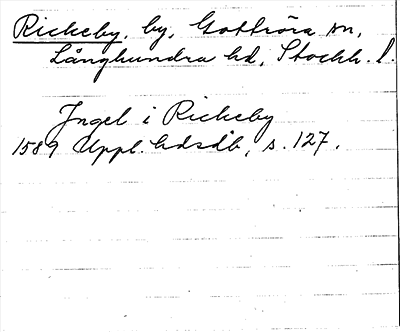 Rickeby, by, Gottröra sn,
Långhundra hd, Stockh. l.
Ingel i Rickeby
1589 Uppl. hdsdb, s. 127.